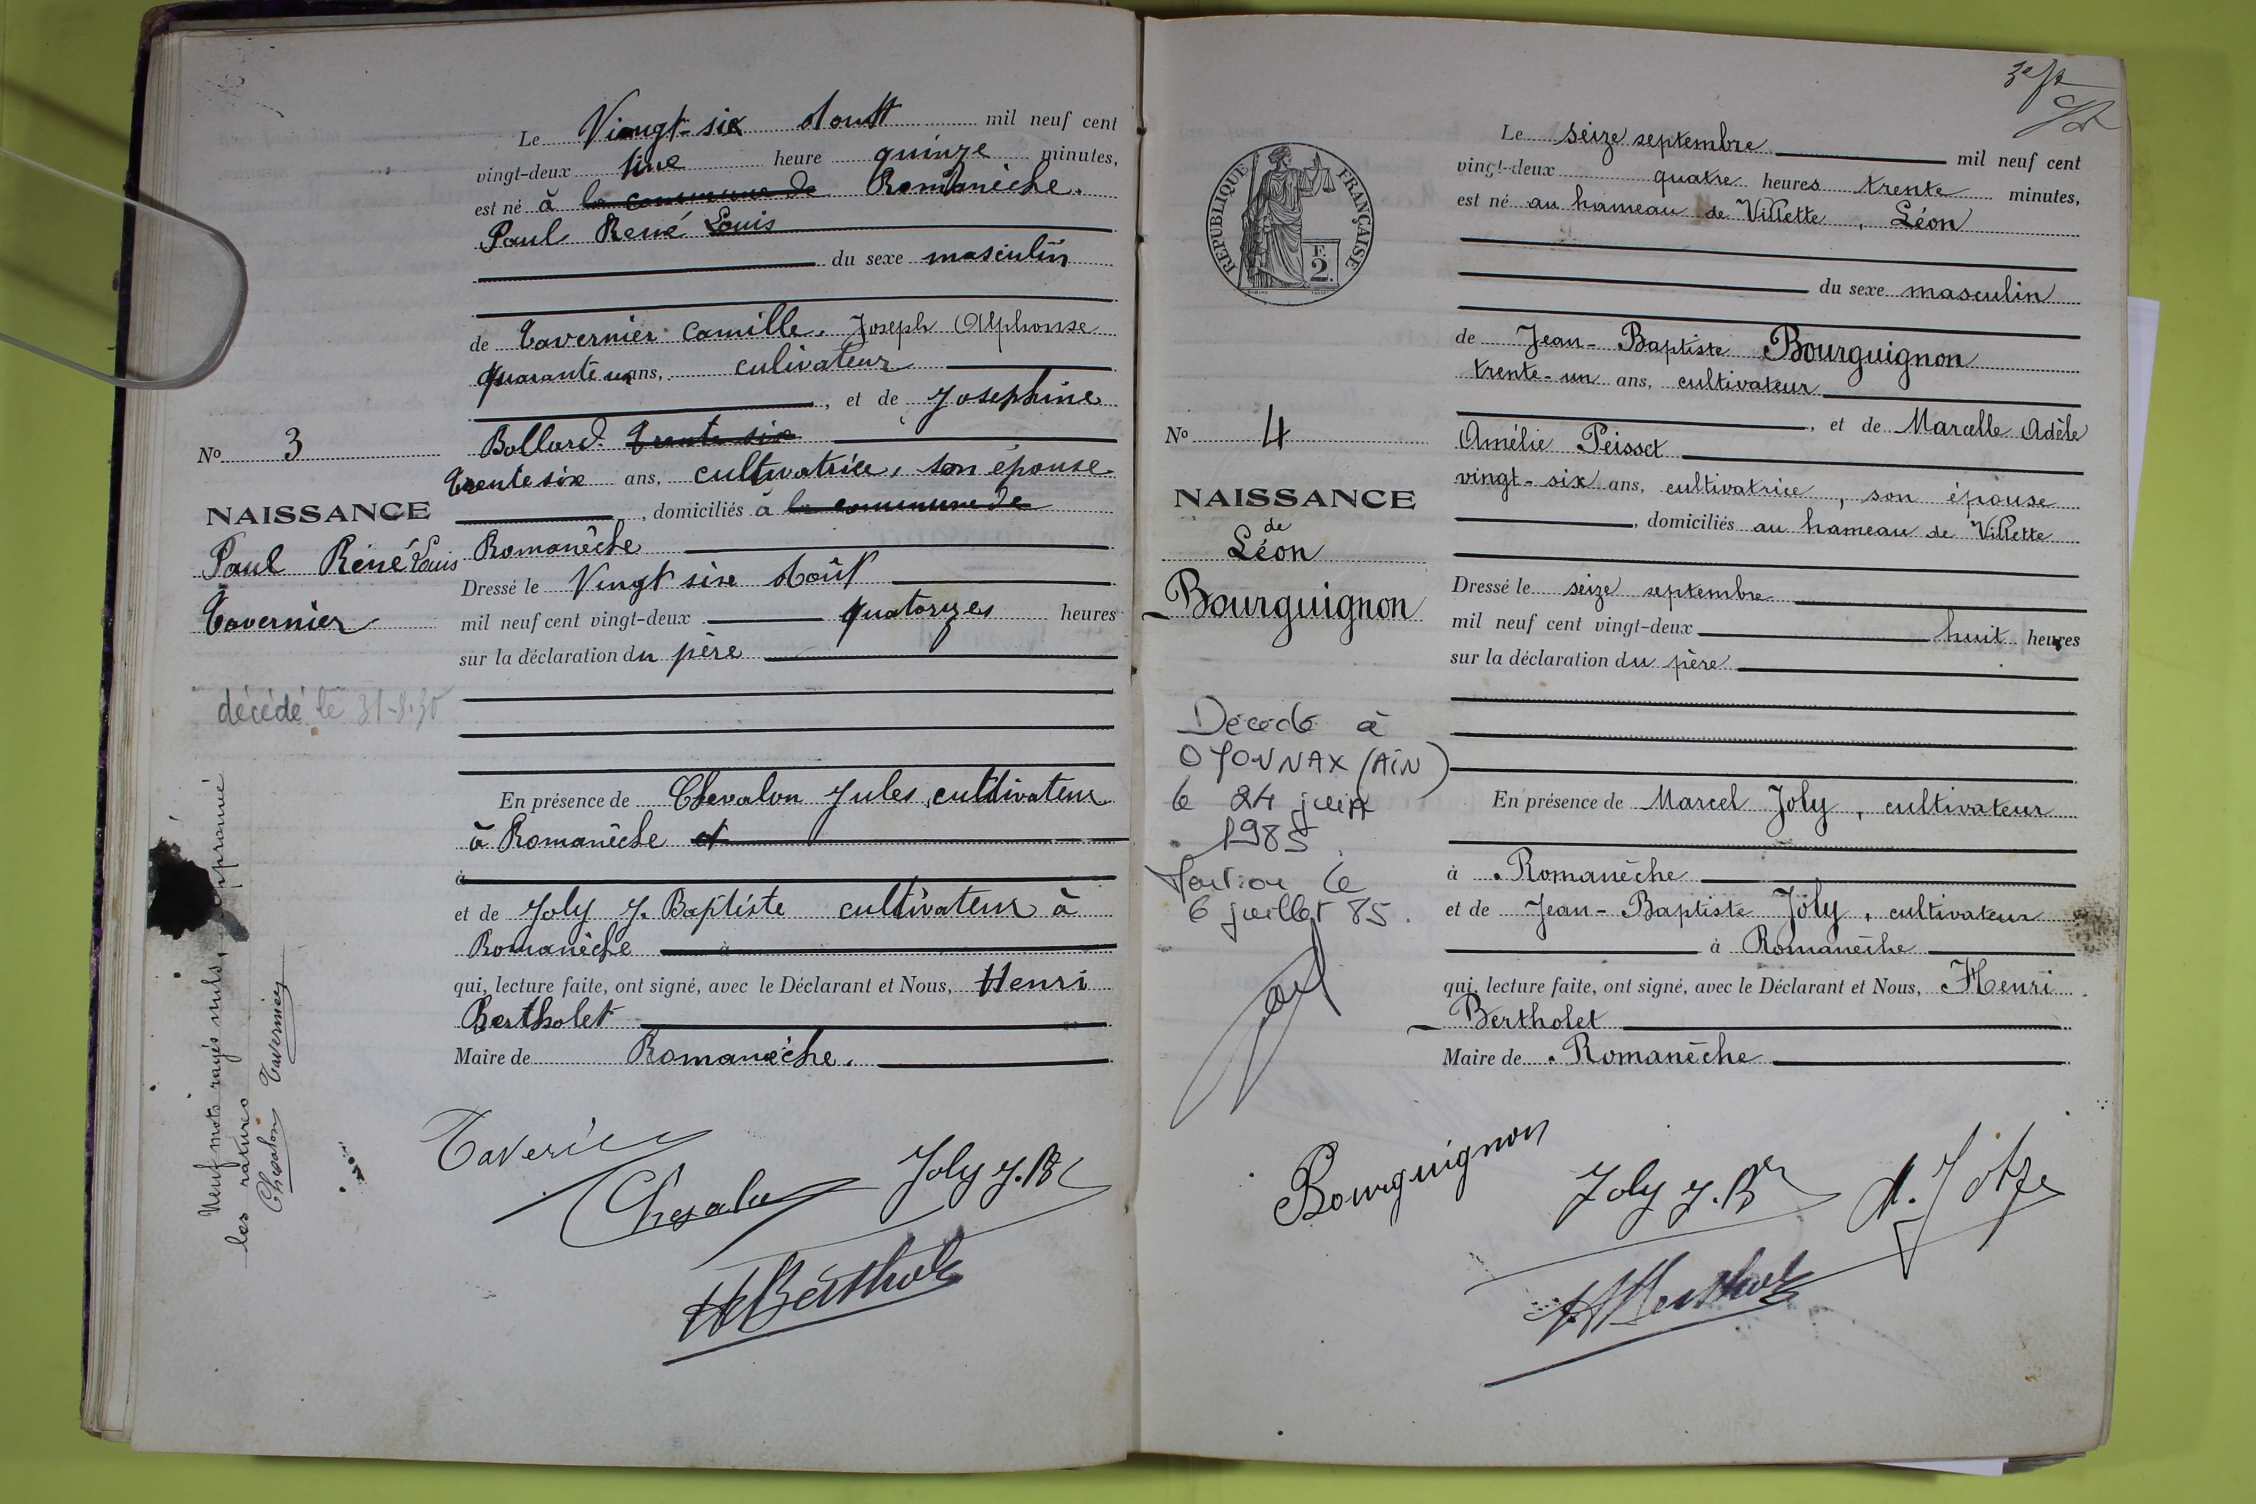 Le Viengt-six Aoust mil neuf cent
vingt-deux une heure quinze minutes,
est né à la commune de Romanèche.
Paul René Louis
du sexe masculin
de Tavernier Camille. Joseph Alphonse
quarante un ans, culivateur
, et de Josephine
Bollard. trente six
trente six ans, cultivatrice, son épouse
, domiciliés à la commune de
Romanèche
Dressé le Vingt six Août
mil neuf cent vingt-deux quatorzes heures
sur la déclaration du père
En présence de Chevalon Jules, cultdivateur
à Romanèche et
à
et de Joly J. Baptiste cultivateur à
Romanèche à
qui, lecture faite, ont signé, avec le Déclarant et Nous, Henri
Bertholet
Maire de Romanèche.
No 3
NAISSANCE
Paul René Louis
Tavernier
décédé le 31-8-30
Neuf mots rayés nuls, approuvé
les ratures
Chevalon Tavernier
Taverier
Chevalon
Joly J. Bte
H Bertholet
3e
REPUBLIQUE FRANÇAISE
F.
2.
Le seize septembre mil neuf cent
vingt-deux quatre heures trente minutes,
est né au hameau de Villette, Léon
du sexe masculin
de Jean-Baptiste Bourguignon
trente-un ans, cultivateur
, et de Marcelle Adèle
Amélie Peisset
vingt-six ans, cultivatrice, son épouse
, domiciliés au hameau de Villette
Dressé le seize septembre
mil neuf cent vingt-deux huit heures
sur la déclaration du père
En présence de Marcel Joly, cultivateur
à Romanèche
et de Jean-Baptiste Joly, cultivateur
à Romanèche
qui, lecture faite, ont signé, avec le Déclarant et Nous, Henri
Bertholet
Maire de Romanèche
No 4
NAISSANCE
de
Léon
Bourguignon
Décédé à
OYONNAX (AIN)
le 24 juin
1985
Mention le
6 juillet 85.
Bourguignon
Joly J. Bte
H Bertholet